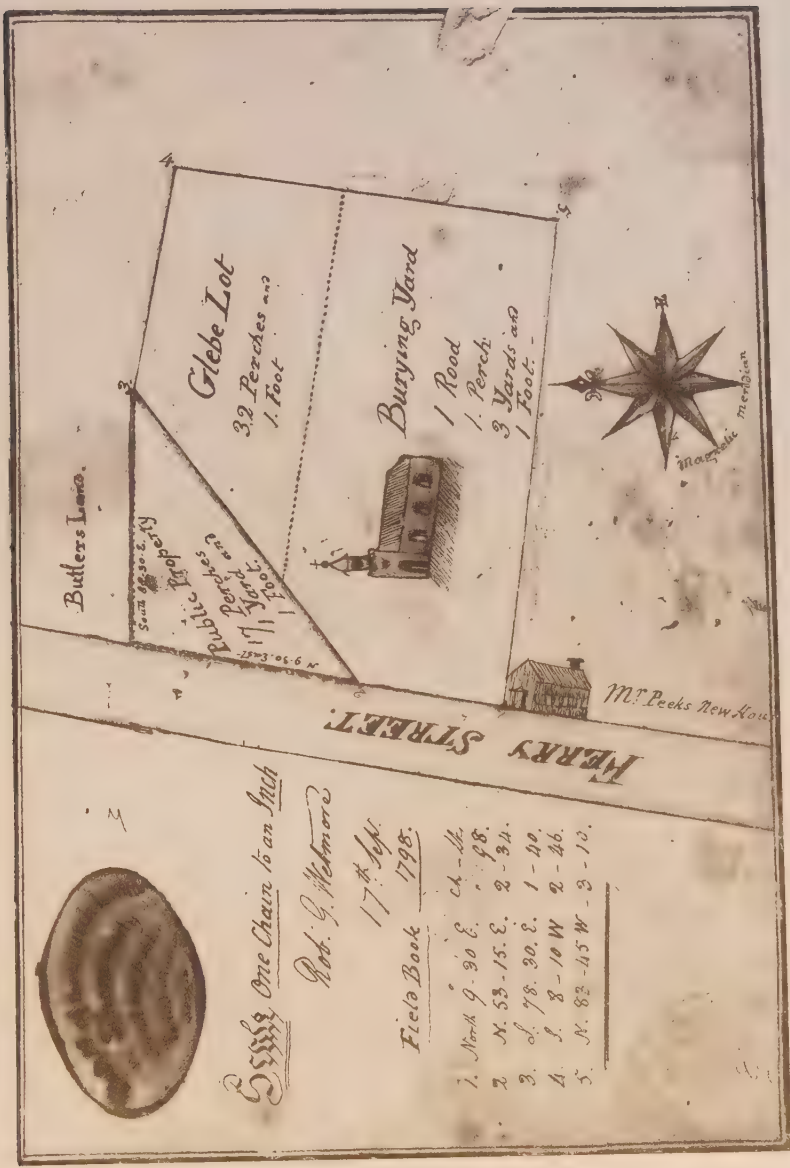 Scale One Chain to an Inch
Rob. G Wetmore
17th Sep.
1798.
Field Book
ch - lk
1. North 9 - 30 E. . 98.
2 N. 53 - 15. E. 2 - 34.
3. S. 78. 30. E. 1 - 40.
4. S. 8 - 10 W 2 - 46.
5. N. 83 - 45 W - 3 - 10.
FERRY STREET.
Mr. Peeks New Hou
Butlers Lane.
South 89.30.E.
Public Property
17 Perches and
1 Yard
1 Foot.
N 9-30-East-
2
3
4
5
Glebe Lot
32 Perches and
1. Foot
Burying Yard
1 Rood
1. Perch
3 Yards and
1 Foot. -
E
Magnetic Meridian